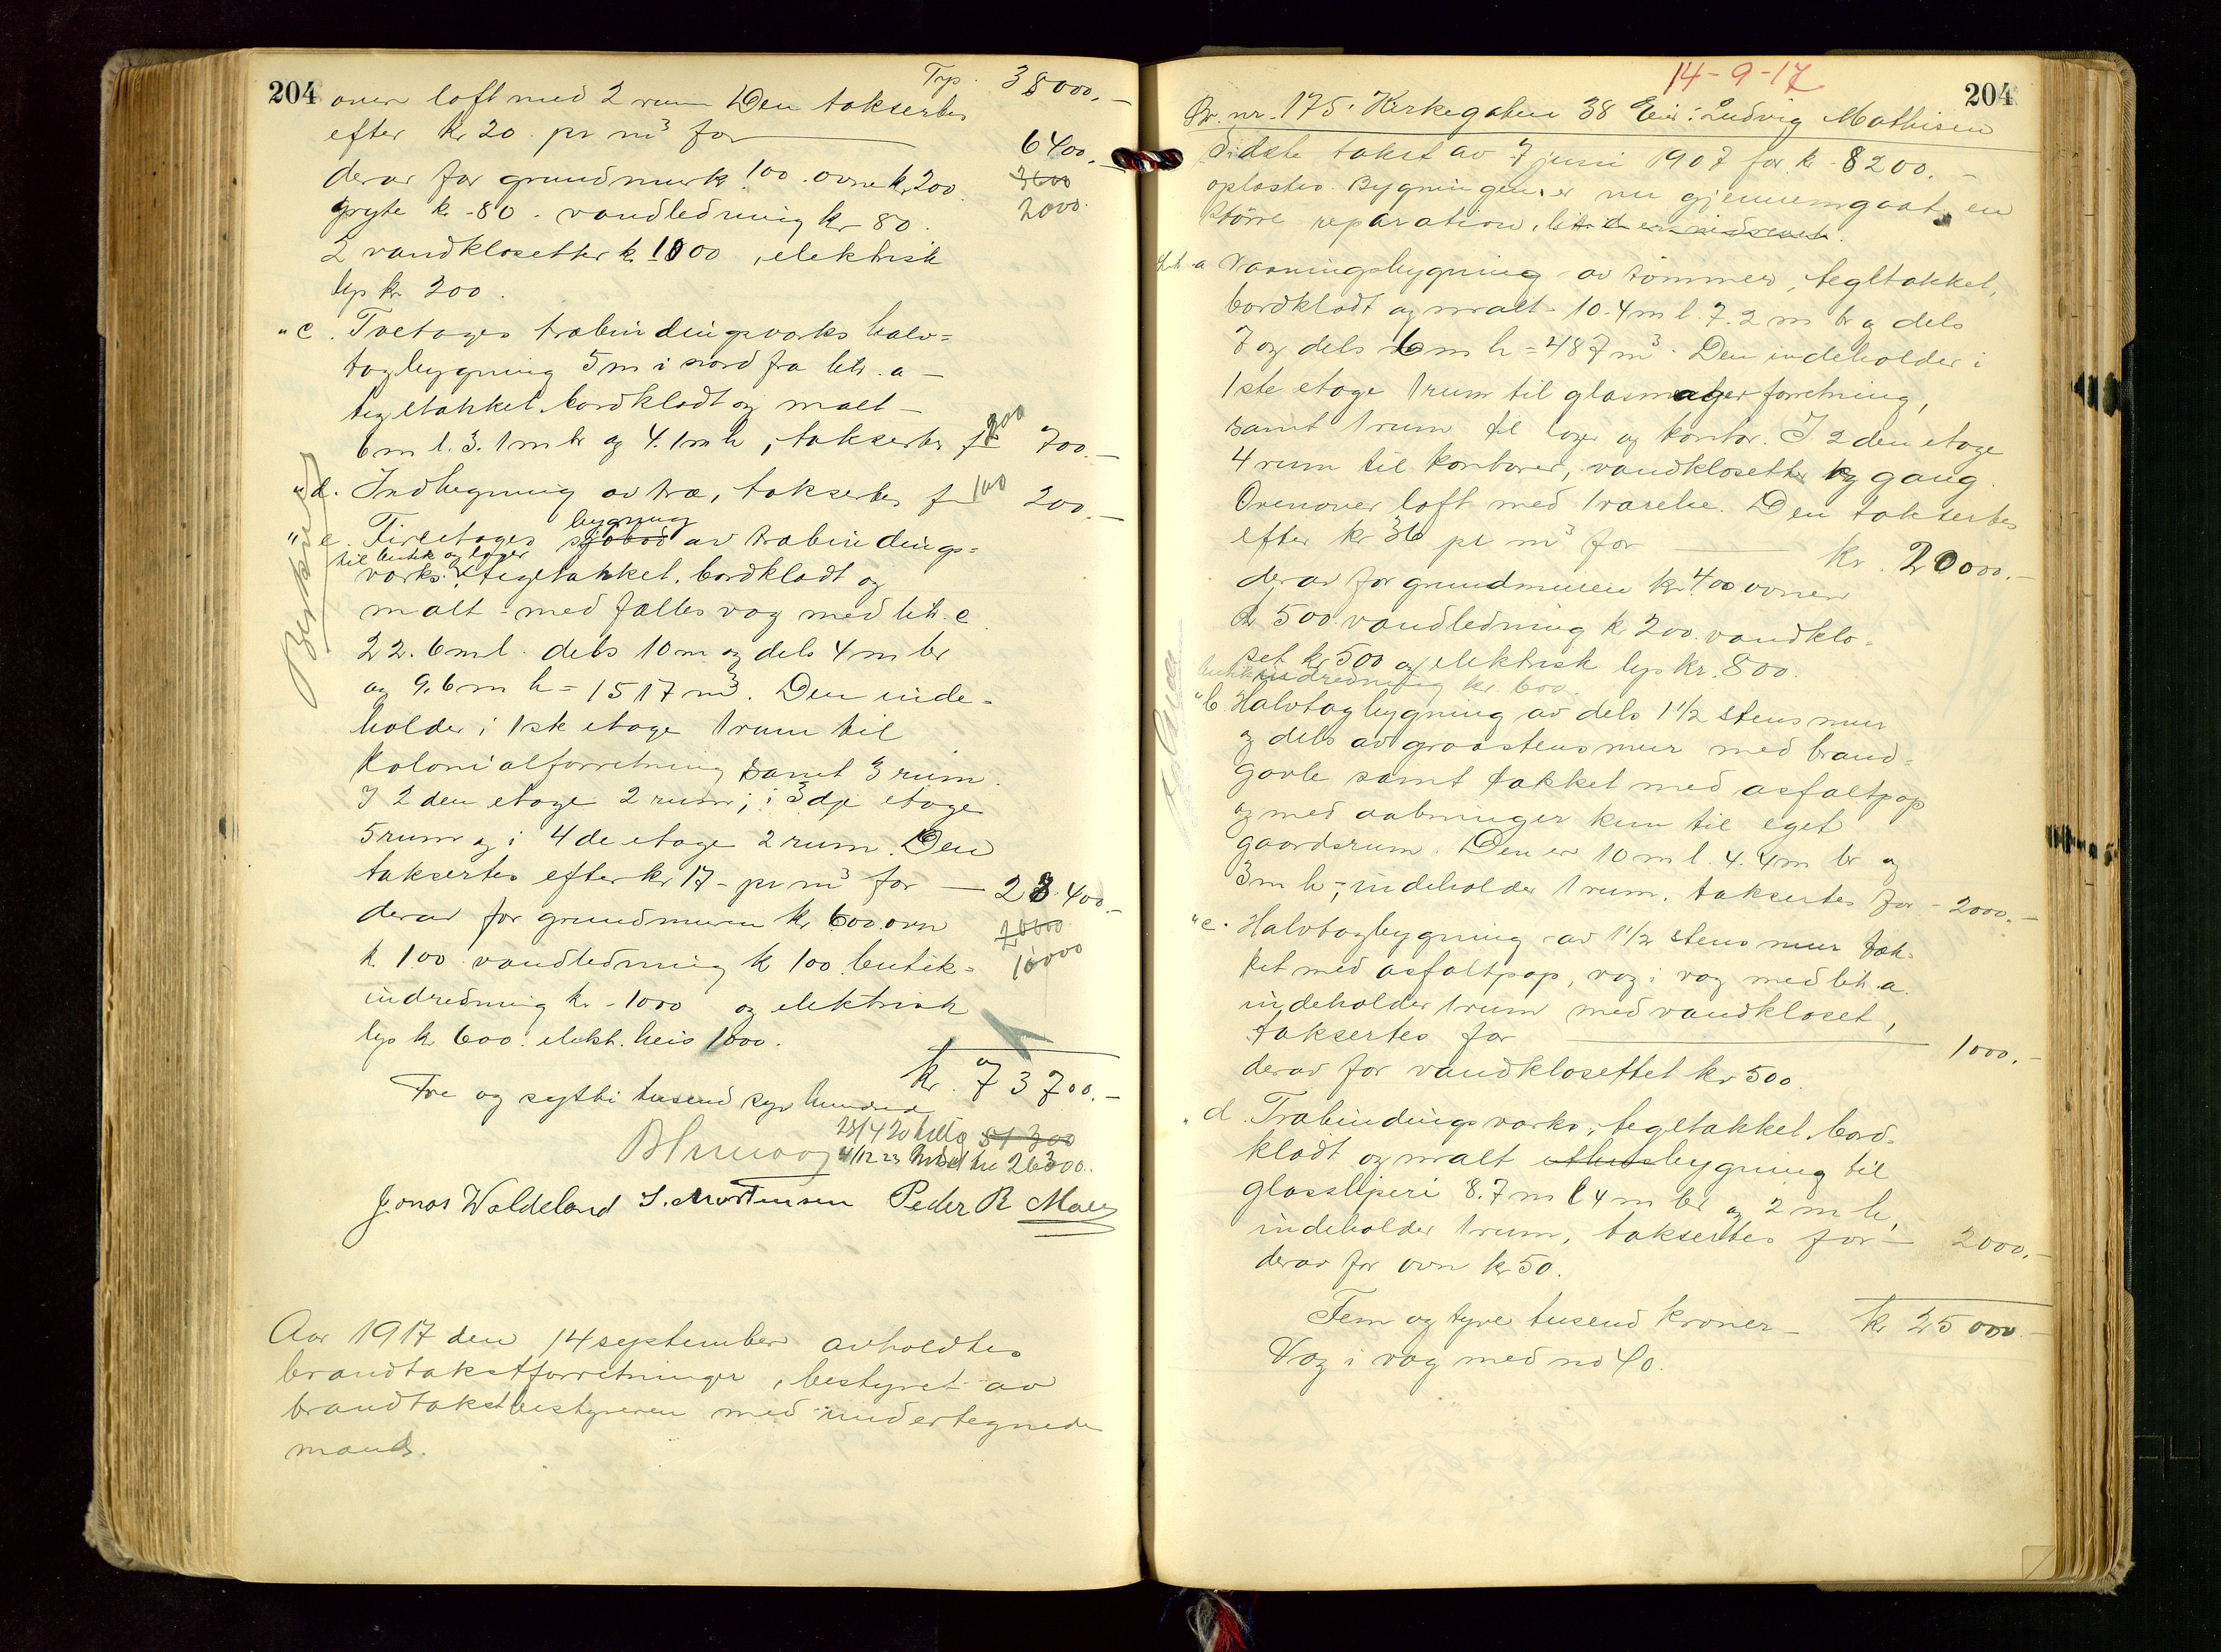 204
Trp. 38000.-
over loft med 2 rum Den taksertes
efter kr 20 pr m³ for 6400.-
derav for grundmur k. 100. ovne kr. 200. 3600
gryte k. -80. vandledning kr 80. 2000.
2 vandklosetter k. 1000, elektrisk
lys kr. 200.
" c. Toetages træbindingsværks halv=
tagbygning 5 m i nord fra litr. a -
tegltækket. bordklædt og malt -
6 m l. 3.1 m br og 4.1 m h, taksertes for 700.-
200
" d. Indhegning av træ, taksertes for 200.-
100
" e. Fireetages sjøbod av træbindings=
bygning
til butik og lager
værks. tegltækket. bordklædt og
malt - med fælles væg med litr. c
22.6 m l. dels 10 m og dels 4 m br
og 9,6 m h = 1517 m³. Den inde=
holder i 1ste etage 1 rum til
kolonialforretning samt 3 rum.
I 2den etage 2 rum; i 3dje etage
5 rum og i 4de etage 2 rum. Den
taksertes efter kr 17 - pr m³ for - 28400.-
derav for grundmuren kr 600. ovn 20000
k. 100 vandledning k 100. butik= 16000
indredning kr. - 1000 og elektrisk
lys kr 600. elekt. heis 1000.
kr. 73700.-
Tre og sytti tusend syv hundred
23/4 20 51300
4/12 23 26300.
Jonas Waldeland S. Mortensen Peder R
Aar 1917 den 14 september avholdtes
brandtakstforretninger, bestyret av
brandtakstbestyreren med undertegnede
mænd.
14-9-17
204
Br. nr. 175. Kirkegaten 38 Eier: Ludvig Mathisen
Sidste takst av 7 juni 1907 for k. 8200.-
oplæstes. Bygningen er nu gjennemgaat en
større reparation, litr. d er nedrevet.
Litr. a Vaaningsbygning av tømmer, tegltækket,
bordklædt og malt - 10.4 m l. 7.2 m br og dels
7 og dels 6 m h = 487 m³. Den indeholder i
1ste etage 1 rum til glasmagerforretning,
samt 1 rum til lager og kontor. I 2den etage
4 rum til kontorer, vandklosetter og gang.
Ovenover loft med 1 værelse. Den taksertes
efter kr 36 pr m³ for kr. 20000.-
derav for grundmuren kr 400 ovner
kr 500. vandledning k. 200. vandklo=
set kr 500 og elektrisk lys kr. 800.
butikindredning kr. 600.
" b. Halvtagbygning av dels 1 1/2 stens mur
og dels av graastensmur med brand=
gavle samt tækket med asfaltpap
og med aabninger kun til eget
gaardsrum. Den er 10 m l. 4.4 m br og
3 m h -, indeholder 1 rum. taksertes for - 2000.-
" c. Halvtagbygning av 1 1/2 stens mur tæk=
ket med asfaltpap, væg i væg med litr. a.
indeholder 1 rum med vandkloset,
taksertes for 1000.-
derav for vandklosettet kr 500.
" d. Træbindingsværks, tegltækket. bord=
klædt og malt uthusbygning til
glassliperi 8.7 m l 4 m br og 2 m h,
indeholder 1 rum, taksertes for - 2000.-
derav for ovn kr 50.
Fem og tyve tusend kroner - kr 25000.-
Væg i væg med no 40.